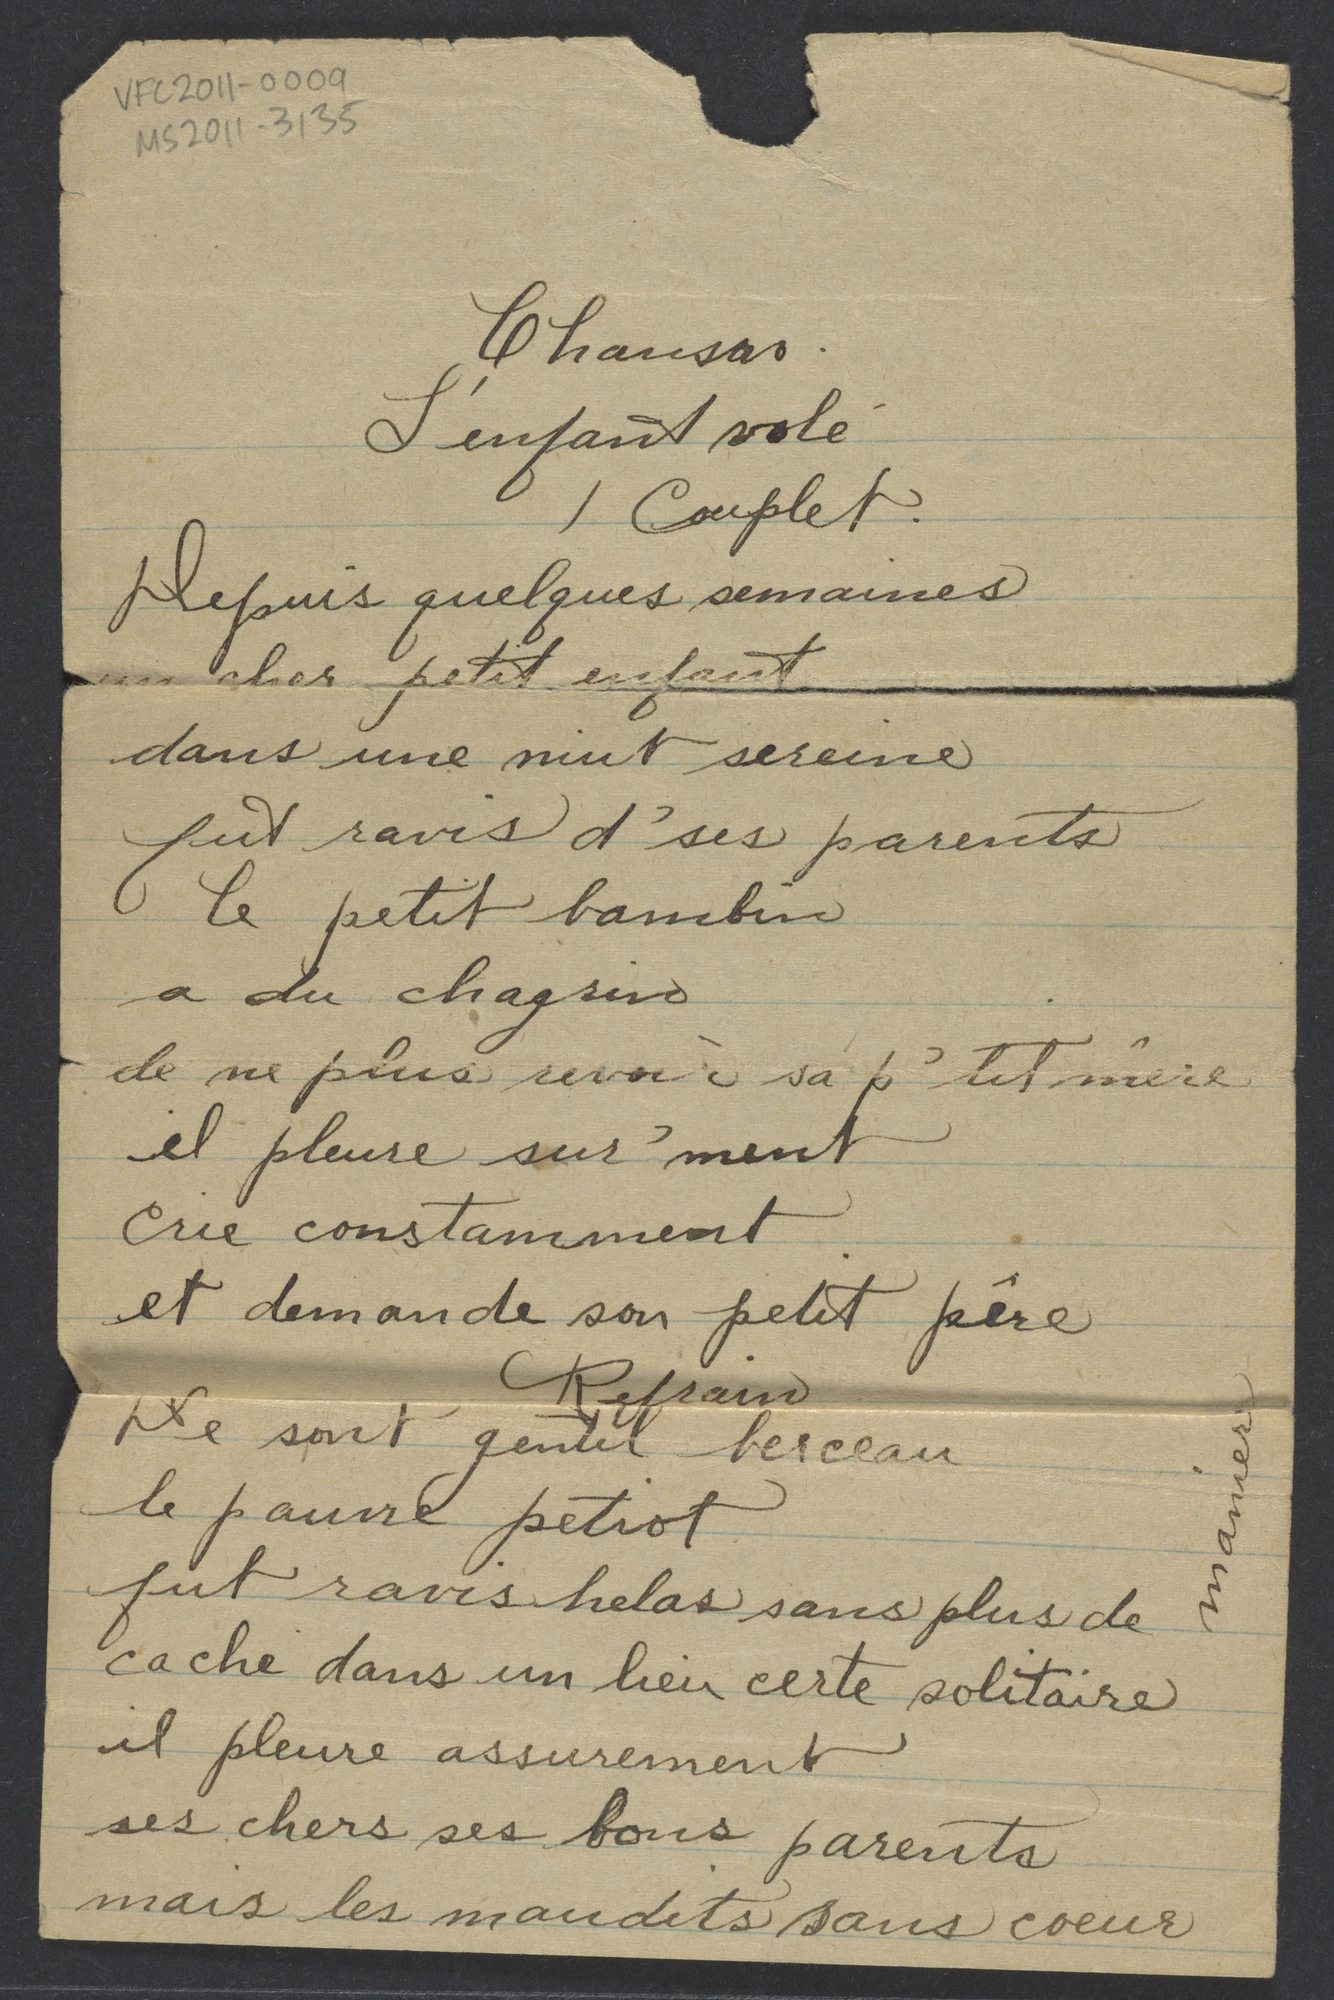 VFC2011-0009
MS2011-3135
Chanson.
L'enfant volé
1 Couplet.
Depuis quelques semaines
un cher petit enfant
dans une niut sereine
fut ravis d'ses parents
le petit bambin
a du chagrin
de ne plus revoir sa p'tit mère
il pleure sur'ment
Crie constamment
et demande son petit père
Refrain
De sont gentil berceau
le pauvre petiot
fut ravis helas sans plus de manier
caché dans un lieu certe solitaire
il pleure assurement
ses chers ses bons parents
mais les maudits sans coeur